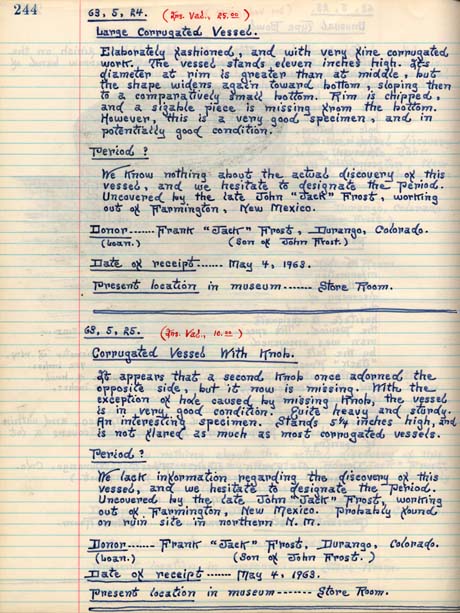 244
63, 5, 24. (Ins. Val., 25.00)
Large Corrugated Vessel.
Elaborately fashioned, and with very fine corrugated
work. The vessel stands eleven inches high. Its
diameter at rim is greater than at middle, but
the shape widens again toward bottom, sloping then
to a comparatively small bottom. Rim is chipped,
and a sizable piece is missing from the bottom.
However, this is a very good specimen, and in
potentially good condition.
Period?
We know nothing about the actual discovery of this
vessel, and we hesitate to designate the Period.
Uncovered by the late John "Jack" Frost, working
out of Farmington, New Mexico.
Donor ...... Frank "Jack" Frost, Durango, Colorado.
(Loan.) (Son of John Frost.)
Date of receipt ...... May 4, 1963.
Present location in museum ------- Store Room.
63, 5, 25. (Ins. Val., 10.00)
Corrugated Vessel With Knob.
It appears that a second knob once adorned the
opposite side, but it now is missing. With the
exception of hole caused by missing knob, the vessel
is in very good condition. Quite heavy and sturdy.
An interesting specimen. Stands 5¼ inches high, and
is not flared as much as most corrugated vessels.
Period?
We lack information regarding the discovery of this
vessel, and we hesitate to designate the Period.
Uncovered by the late John "Jack" Frost, working
out of Farmington, New Mexico. Probably found
on ruin site in northern N. M.
Donor ....... Frank "Jack" Frost, Durango, Colorado.
(Loan.) (Son of John Frost.)
Date of receipt ------ May 4, 1963.
Present location in museum ------- Store Room.